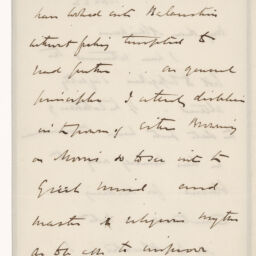 have looked into Balaustion
without feeling tempted to
read further . . on general
principles I utterly disbelieve
in the power of either Browning
or Morris to see into the
Greek mind and
master its religious myths
as to be able to improve